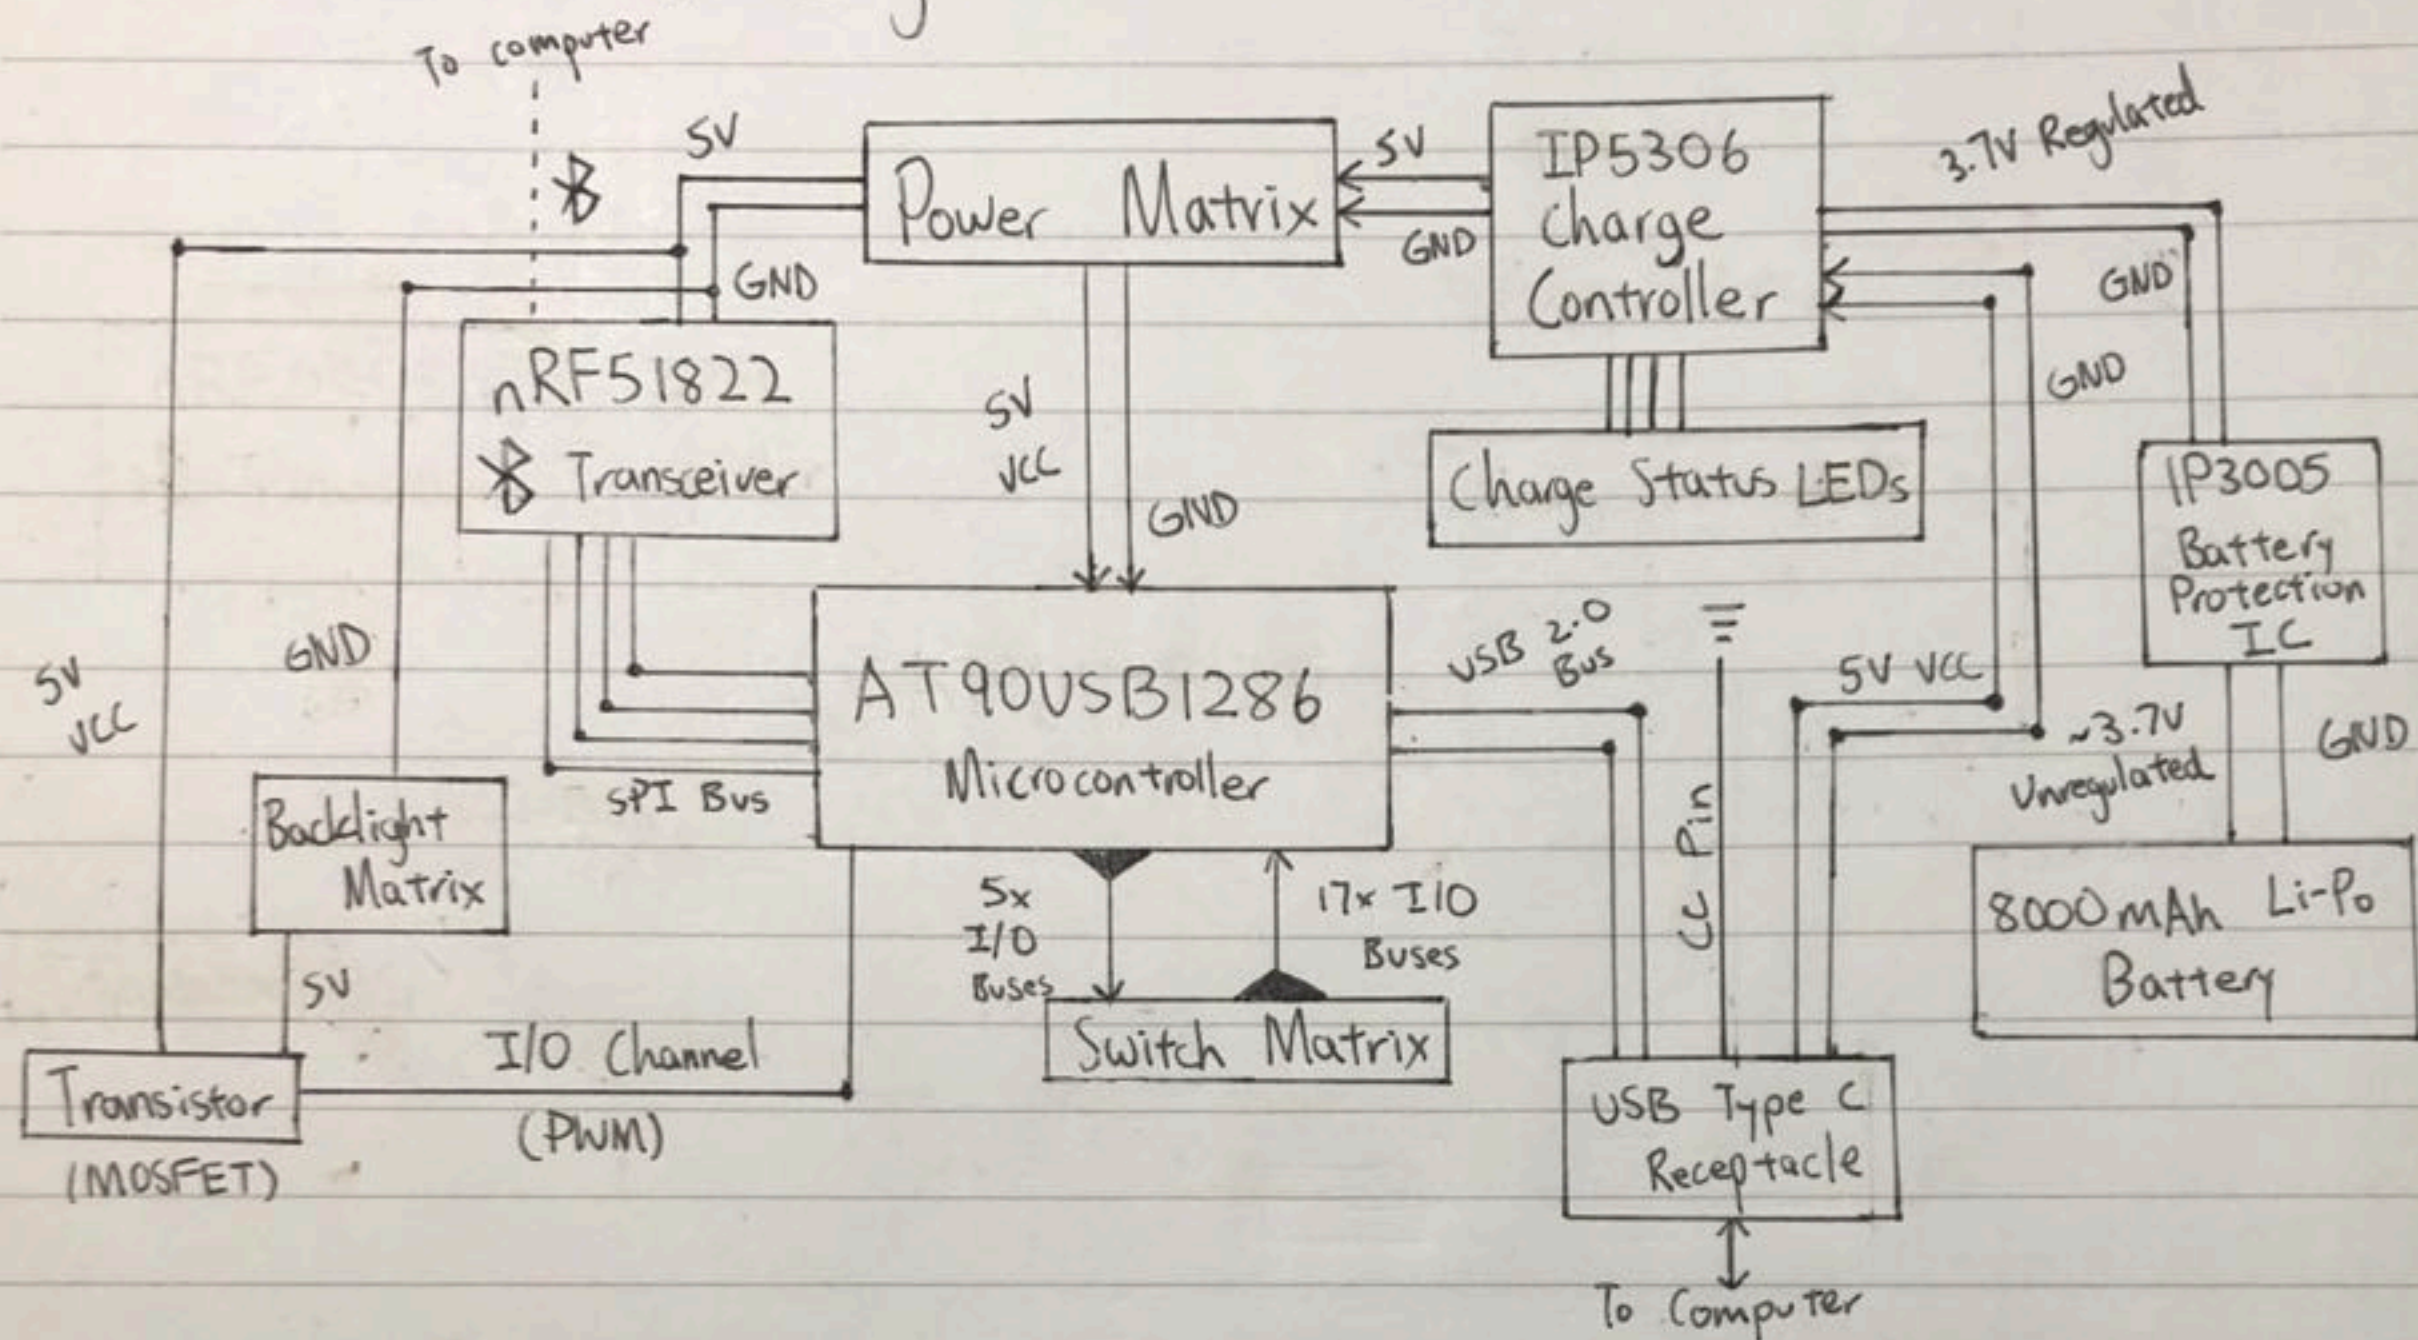 To computer
5V
Power Matrix
5V
GND
IP5306
Charge
Controller
3.7V Regulated
GND
GND
GND
nRF51822
Transceiver
5V
VCC
GND
Charge Status LEDs
IP3005
Battery
Protection
IC
5V
VCC
GND
AT90USB1286
Microcontroller
SPI Bus
USB 2.0
Bus
CC Pin
5V VCC
~3.7V
Unregulated
GND
Backlight
Matrix
5V
5x
I/O
Buses
17x I/O
Buses
8000mAh Li-Po
Battery
Transistor
(MOSFET)
I/O Channel
(PWM)
Switch Matrix
USB Type C
Receptacle
To Computer